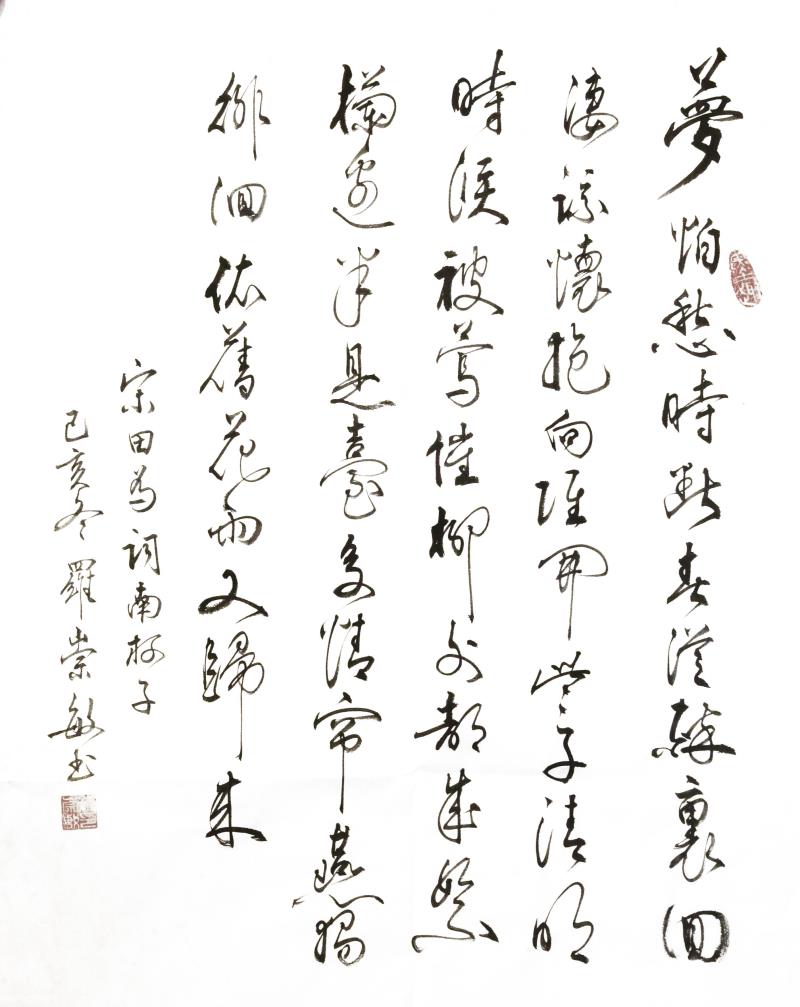 夢怕愁時斷春從醉裏回
淒涼懷抱向誰開些子清明
時候被鶯催柳外都成絮
欄邊半是臺多情帘燕獨
徘徊依舊花雨又歸來
宋田為詞南柯子
己亥冬羅崇敏书